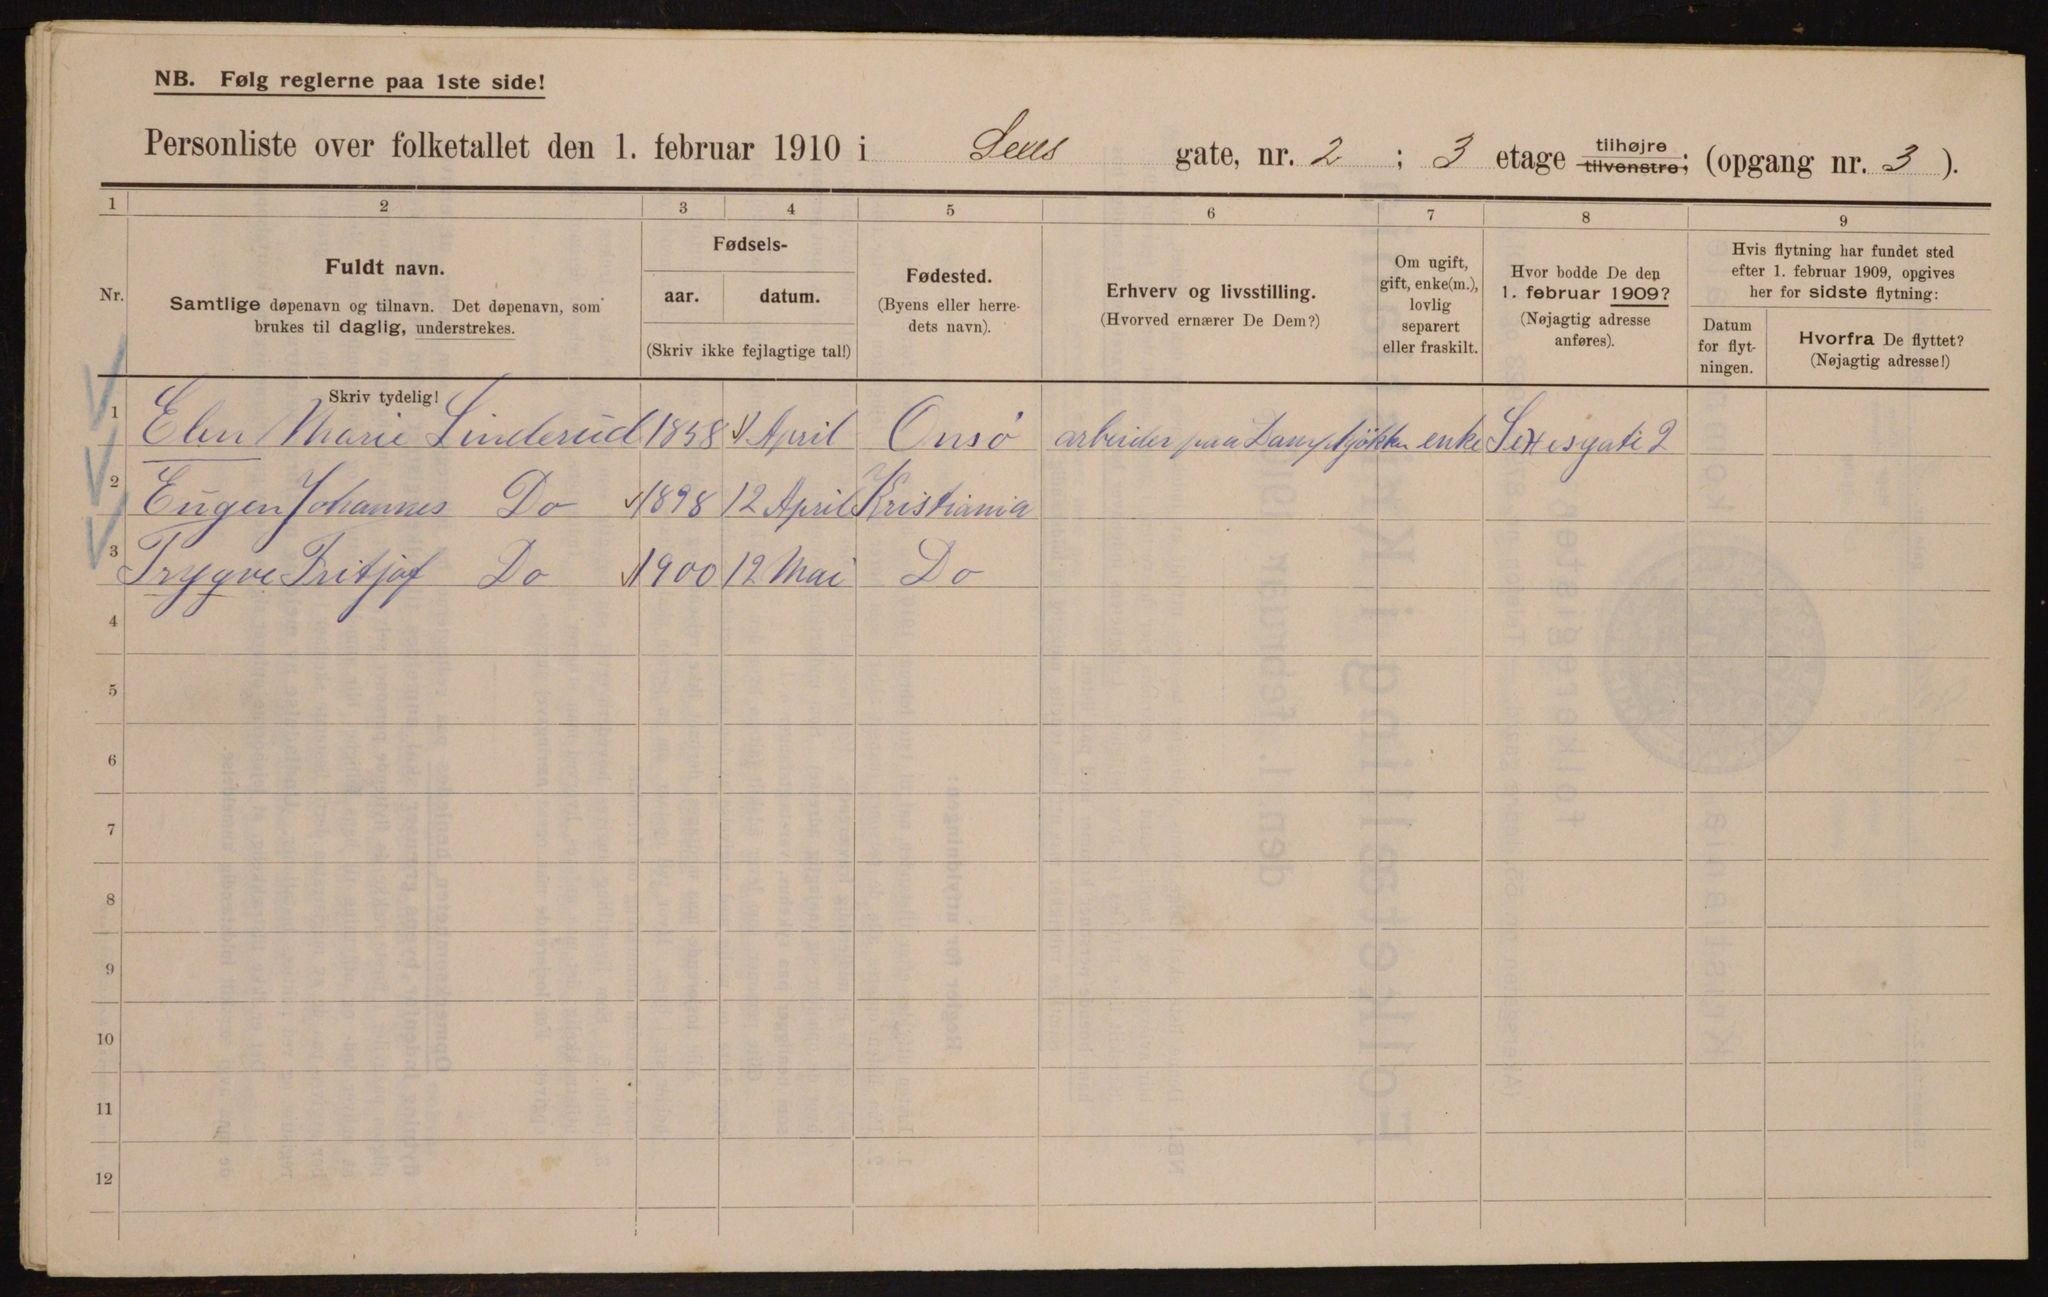 NB. Følg reglerne paa 1ste side!
Personliste over folketallet den 1. februar 1910 i Sexes gate, nr. 2 ; 3 etage tilhøjre tilvenstre; (opgang nr. 3 ).
1 2 3 4 5 6 7 8 9
Nr.
Fuldt navn.
Samtlige døpenavn og tilnavn. Det døpenavn, som
brukes til daglig, understrekes.
Skriv tydelig!
Fødsels-
aar. datum.
(Skriv ikke fejlagtige tal!)
Fødested.
(Byens eller herre-
dets navn).
Erhverv og livsstilling.
(Hvorved ernærer De Dem?)
Om ugift,
gift, enke(m.),
lovlig
separert
eller fraskilt.
Hvor bodde De den
1. februar 1909?
(Nøjagtig adresse
anføres).
Hvis flytning har fundet sted
efter 1. februar 1909, opgives
her for sidste flytning:
Datum
for flyt-
ningen.
Hvorfra De flyttet?
(Nøjagtig adresse!)
1 Elen Marie Linderud 1858 April Onsø arbeider paa Dampkjøkken enke Sexesgate 2
2 Eugen Johannes Do 1898 12 April Kristiania
3 Trygve Fritjof Do 1900 12 Mai Do
4
5
6
7
8
9
10
11
12